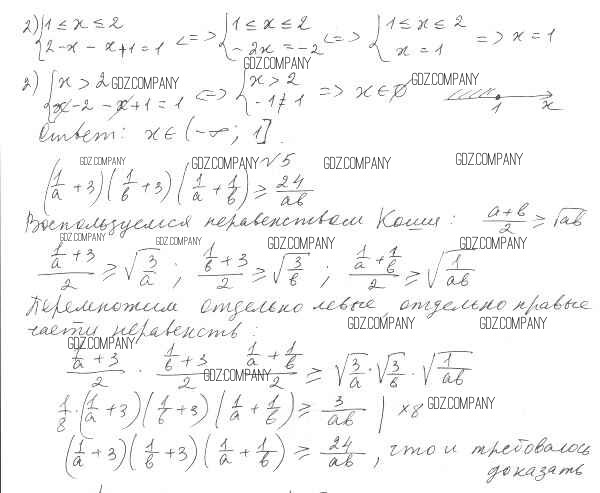 2) { 1 ≤ x ≤ 2 <=> { 1 ≤ x ≤ 2 <=> { 1 ≤ x ≤ 2 => x = 1
{ 2 - x - x + 1 = 1 { - 2x = -2 { x = 1
GDZ.COMPANY
2) { x > 2 GDZ.COMPANY <=> { x > 2 => x ∈ ∅ GDZ.COMPANY
{ x - 2 - x + 1 = 1 { -1 ≠ 1 1 x
Ответ: x ∈ (-∞; 1].
GDZ.COMPANY GDZ.COMPANY √5 GDZ.COMPANY GDZ.COMPANY
(1/a + 3)(1/в + 3)(1/a + 1/в) ≥ 24/aв
Воспользуемся неравенством Коши: (a+в)/2 ≥ √aв
GDZ.COMPANY GDZ.COMPANY GDZ.COMPANY GDZ.COMPANY
(1/a + 3)/2 ≥ √(3/a); (1/в + 3)/2 ≥ √(3/в); (1/a + 1/в)/2 ≥ √(1/aв)
Перемножим отдельно левые, отдельно правые
части неравенств: GDZ.COMPANY GDZ.COMPANY
GDZ.COMPANY
(1/a + 3)/2 · (1/в + 3)/2 · (1/a + 1/в)/2 ≥ √(3/a) · √(3/в) · √(1/aв)
GDZ.COMPANY
1/8 · (1/a + 3)(1/в + 3)(1/a + 1/в) ≥ 3/aв | ×8 GDZ.COMPANY
(1/a + 3)(1/в + 3)(1/a + 1/в) ≥ 24/aв, что и требовалось
доказать